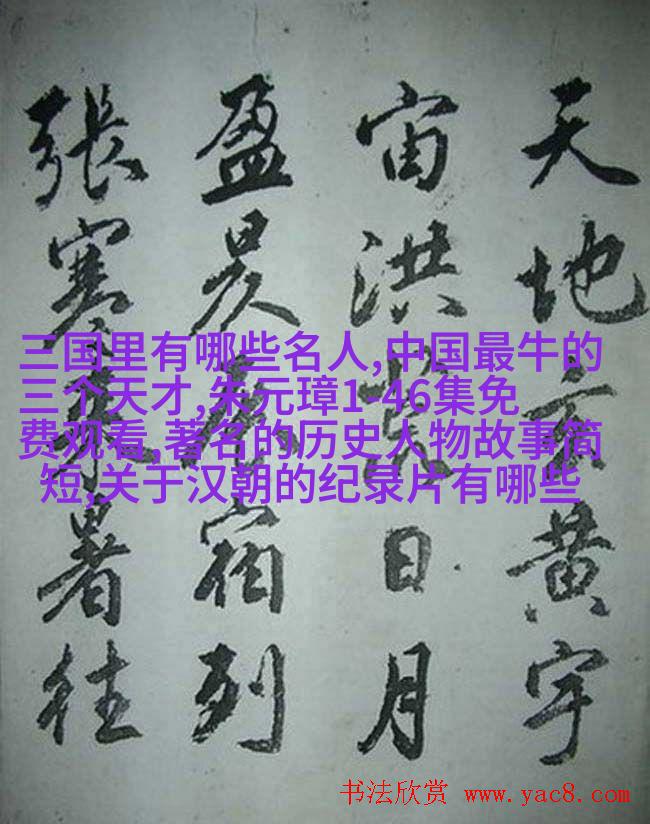 天地玄黄宇
宙洪荒日月
盈昃辰宿列
張寒来暑往
三国里有哪些名人,中国最牛的
三个天才,朱元璋1-46集免
费观看,著名的历史人物故事简
短,关于汉朝的纪录片有哪些
书法欣赏 www.yac8.com